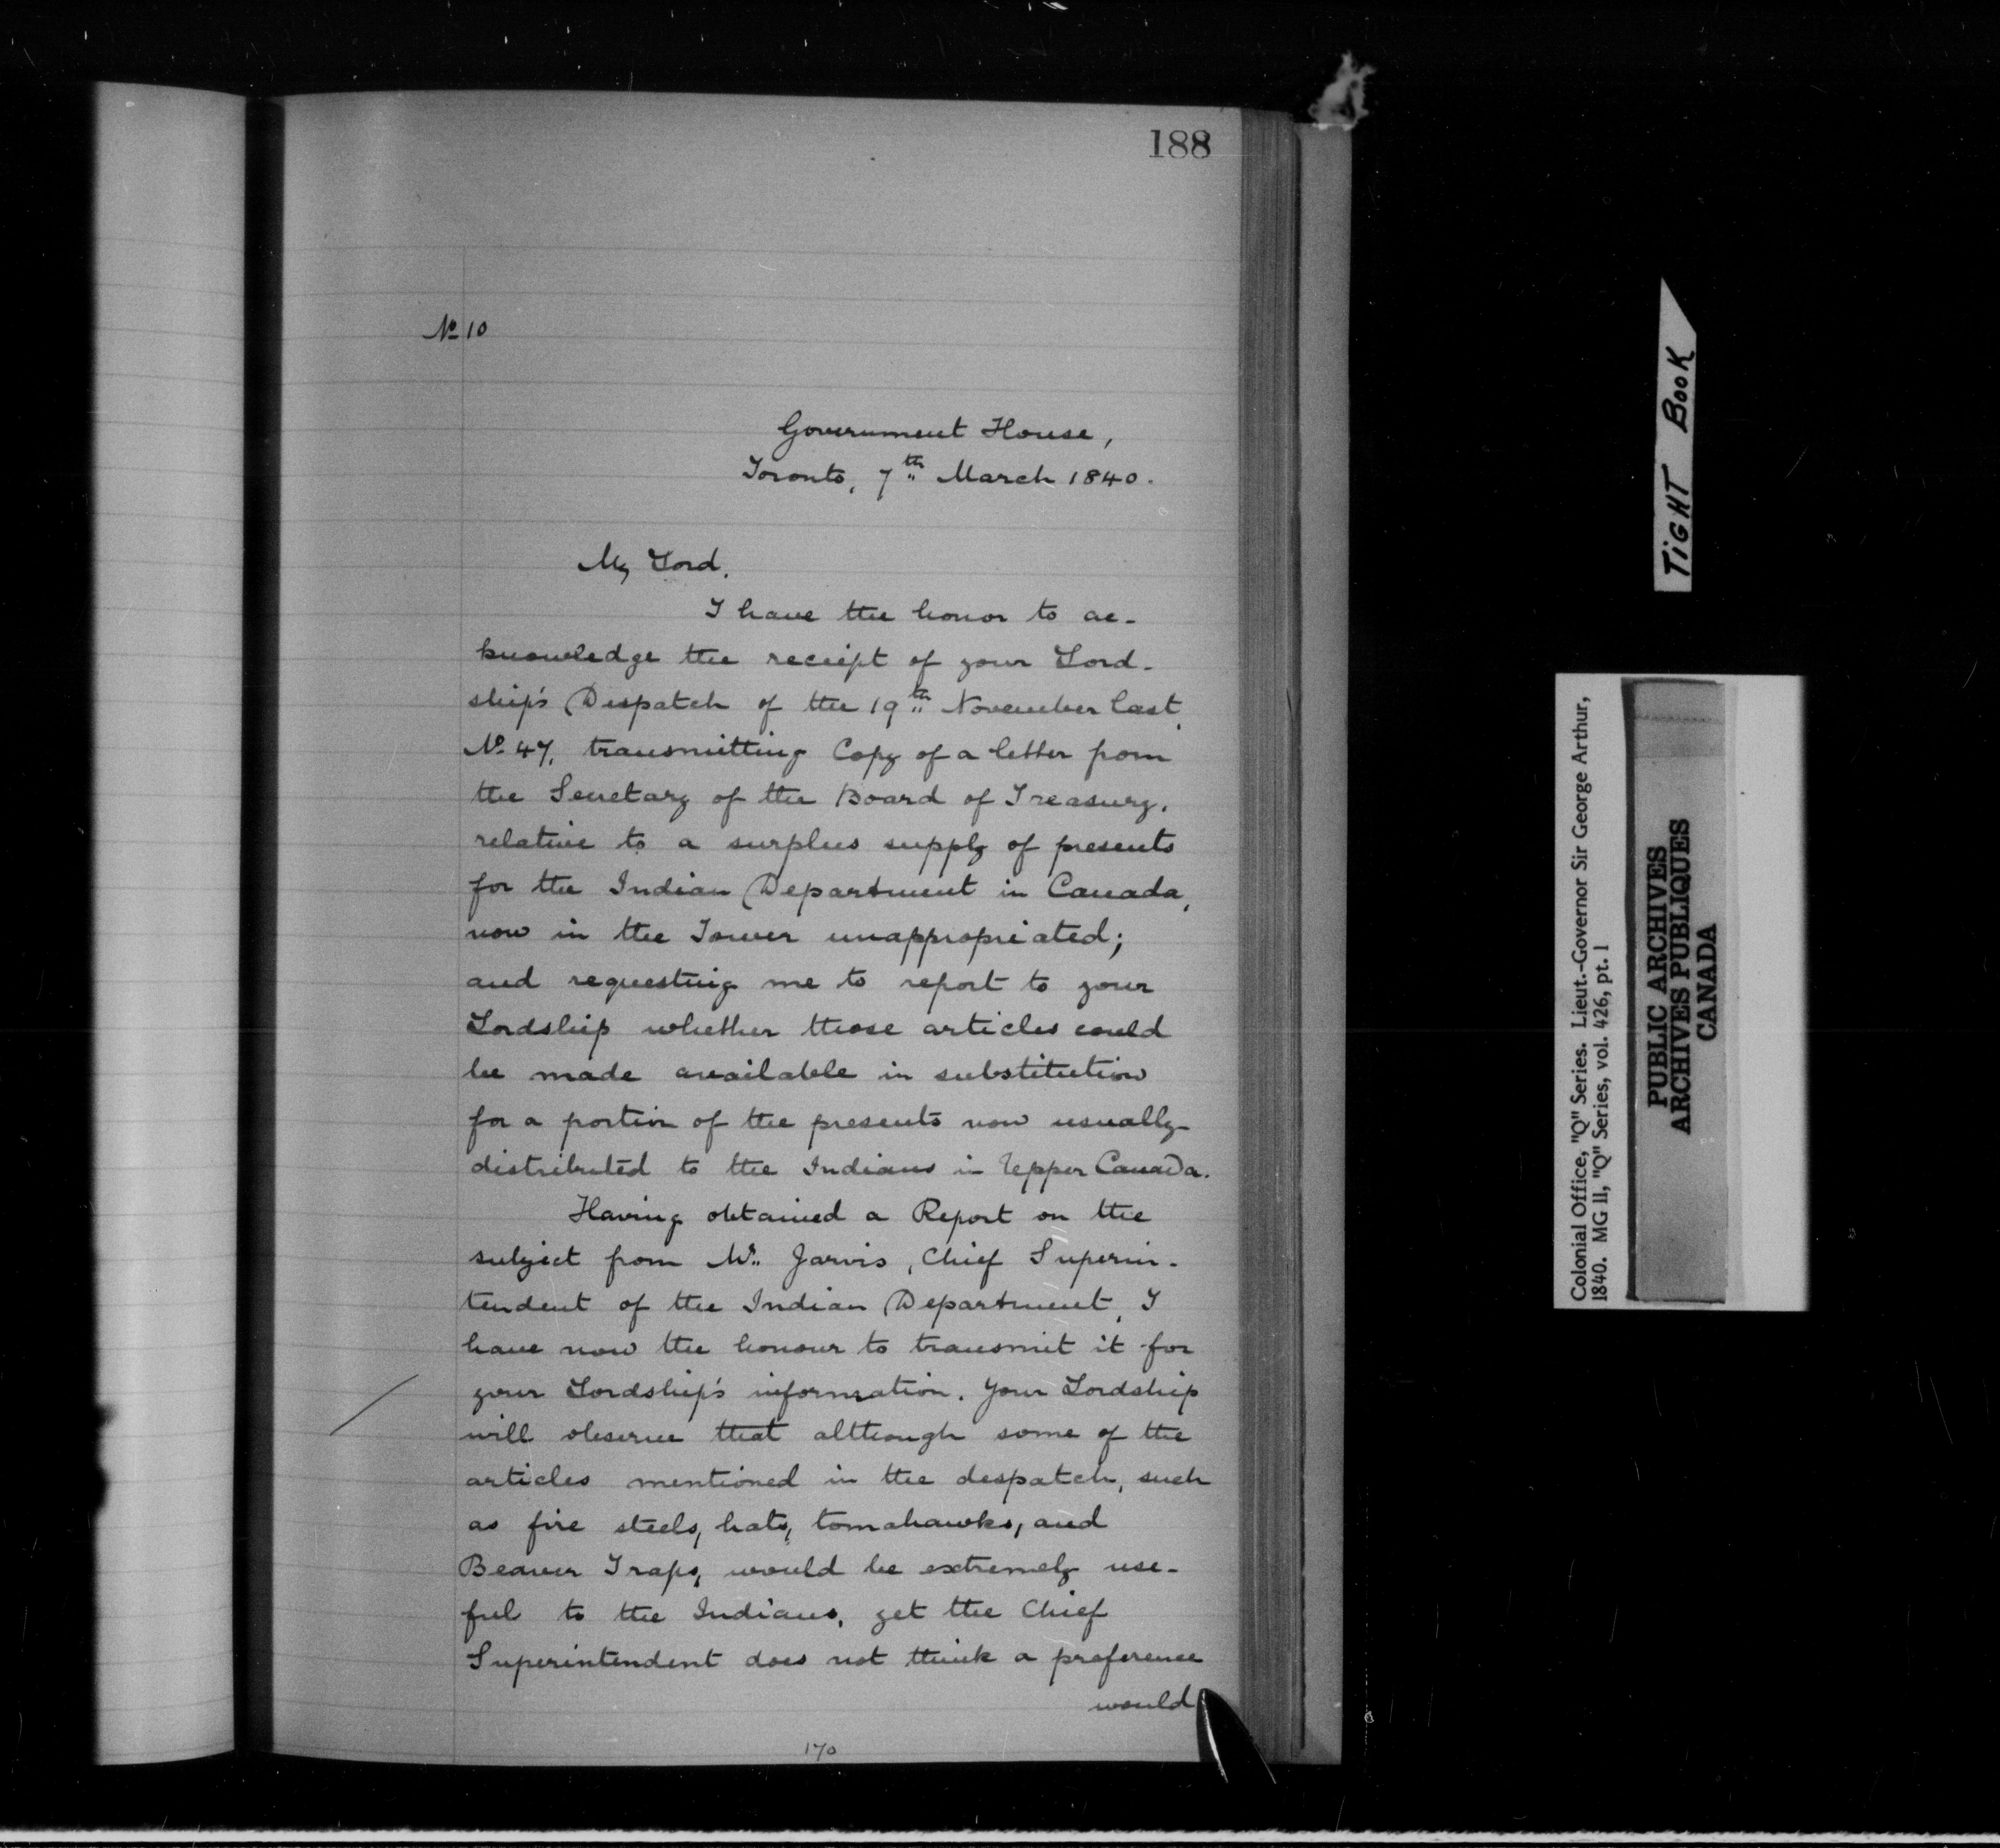 188
№ 10
Government House,
Toronto, 7th March 1840.
My Lord,
I have the honor to ac-
knowledge the receipt of your Lord-
ship's Despatch of the 19th November last,
No. 47, transmitting Copy of a letter from
the Secretary of the Board of Treasury,
relative to a surplus supply of presents
for the Indian Department in Canada,
now in the Tower unappropriated;
and requesting me to report to your
Lordship whether those articles could
be made available in substitution
for a portion of the presents now usually
distributed to the Indians in Upper Canada.
Having obtained a Report on the
subject from Mr. Jarvis, Chief Superin-
tendent of the Indian Department, I
have now the honour to transmit it for
your Lordship's information. Your Lordship
will observe that although some of the
articles mentioned in the despatch, such
as fire steels, hats, tomahawks, and
Beaver Traps, would be extremely use-
ful to the Indians, yet the Chief
Superintendent does not think a preference
would
170
TIGHT BOOK
Colonial Office, "Q" Series. Lieut.-Governor Sir George Arthur,
1840. MG 11, "Q" Series, vol. 426, pt. 1
PUBLIC ARCHIVES
ARCHIVES PUBLIQUES
CANADA